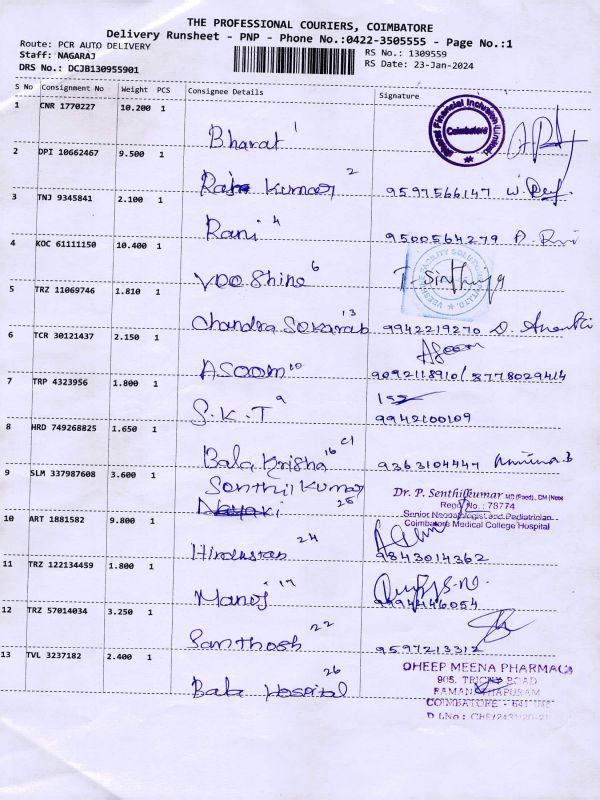 THE PROFESSIONAL COURIERS, COIMBATORE
Delivery Runsheet - PNP - Phone No.:0422-3505555 - Page No.:1
Route: PCR AUTO DELIVERY
RS No.: 1309559
Staff: NAGARAJ
RS Date: 23-Jan-2024
DRS No.: DCJB130955901
S No Consignment No Weight PCS Consignee Details Signature
1 CNR 1770227 10.200 1
Bharat 1
Coimbatore
2 DPI 10662467 9.500 1
Kumar 2 9597566147
3 TNJ 9345841 2.100 1
Rani 4 9500564279
4 KOC 61111150 10.400 1
VDO Shine 6
5 TRZ 11069746 1.810 1
Chandra Sekarab 13 9942219270
6 TCR 30121437 2.150 1
ASoom 10 9092118910/
7 TRP 4323956 1.800 1
S.K.T 9 9942100109
8 HRD 749268825 1.650 1
Bala Krisha 16 9363104447
9 SLM 337987608 3.600 1
Senthil Kumar
25
Dr. P. Senthilkumar
Regd No.: 78774
Senior Neonatologist and Pediatrician
Coimbatore Medical College Hospital
10 ART 1881582 9.800 1
Hindustan 24 9843014362
11 TRZ 122134459 1.800 1
Manoj 17 9994446054
12 TRZ 57014034 3.250 1
Santhosh 22 9597213312
13 TVL 3237182 2.400 1
Bala Hospital 26
DHEEP MEENA PHARMACY
905, TRICHY ROAD
RAMANATHAPURAM
COIMBATORE